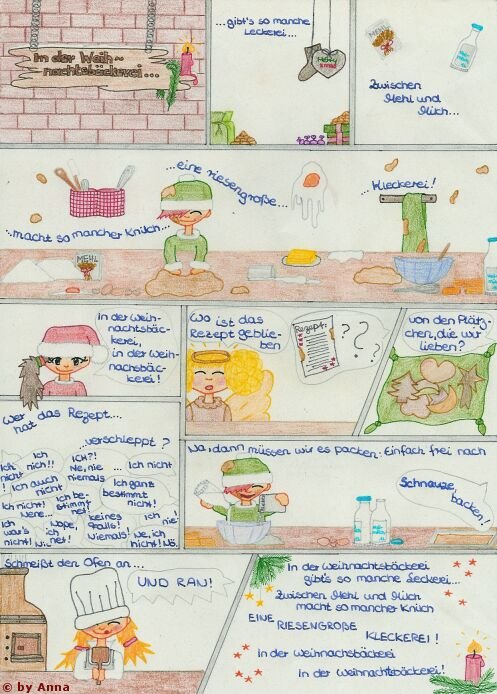 In der Weih~
nachtsbäckerei...
...gibt's so manche
Leckerei...
Merry
X-mas
Zwischen
Mehl und
Milch...
...macht so mancher Knilch...
MEHL
...eine riesengroße...
...Kleckerei!
In der Weih-
nachtsbäc-
kerei,
in der Weih-
nachsbäc-
kerei!
Wo ist das
Rezept geblie-
ben
Rezept:
???
von den Plätz-
chen, die wir
lieben?
Wer das Rezept...
hat
...verschleppt?
Ich
nicht!
Ich
nich!!
ICH?!
Ne, nie
niemals
... Ich nicht
Ich auch
nicht
Ich ganz
bestimmt
nicht!
Ich nicht!
Ich be-
stimmt
net!
Nene...
Ich
war's
nicht!
Nope,
ich
net!
keines
falls!
Niemals!
Ich
nie!
Ne, ich
nicht! Nö.
Na, dann müssen wir es packen: Einfach frei nach
Schnauze,
backen!
Schmeißt den Ofen an...
UND RAN!
In der Weihnachtsbäckerei
gibt's so manche Leckerei...
Zwischen Mehl und Milch
macht so mancher Knilch
EINE
RIESENGROßE
KLECKEREI!
In der Weihnachtsbäckerei
In der Weihnachtsbäckerei!
© by Anna